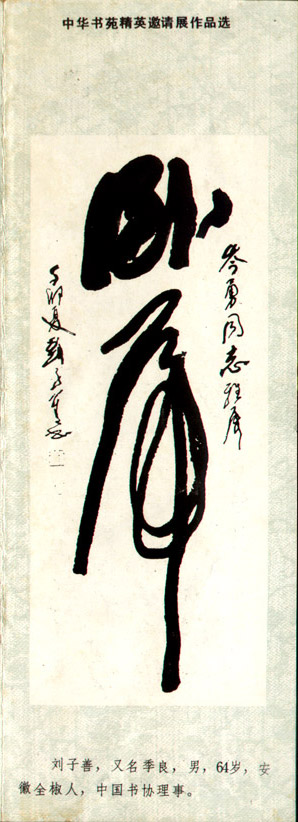 中华书苑精英邀请展作品选
岑勇同志雅属
卧虎
丁卯夏劉子善
刘子善，又名季良，男，64岁，安
徽全椒人，中国书协理事。